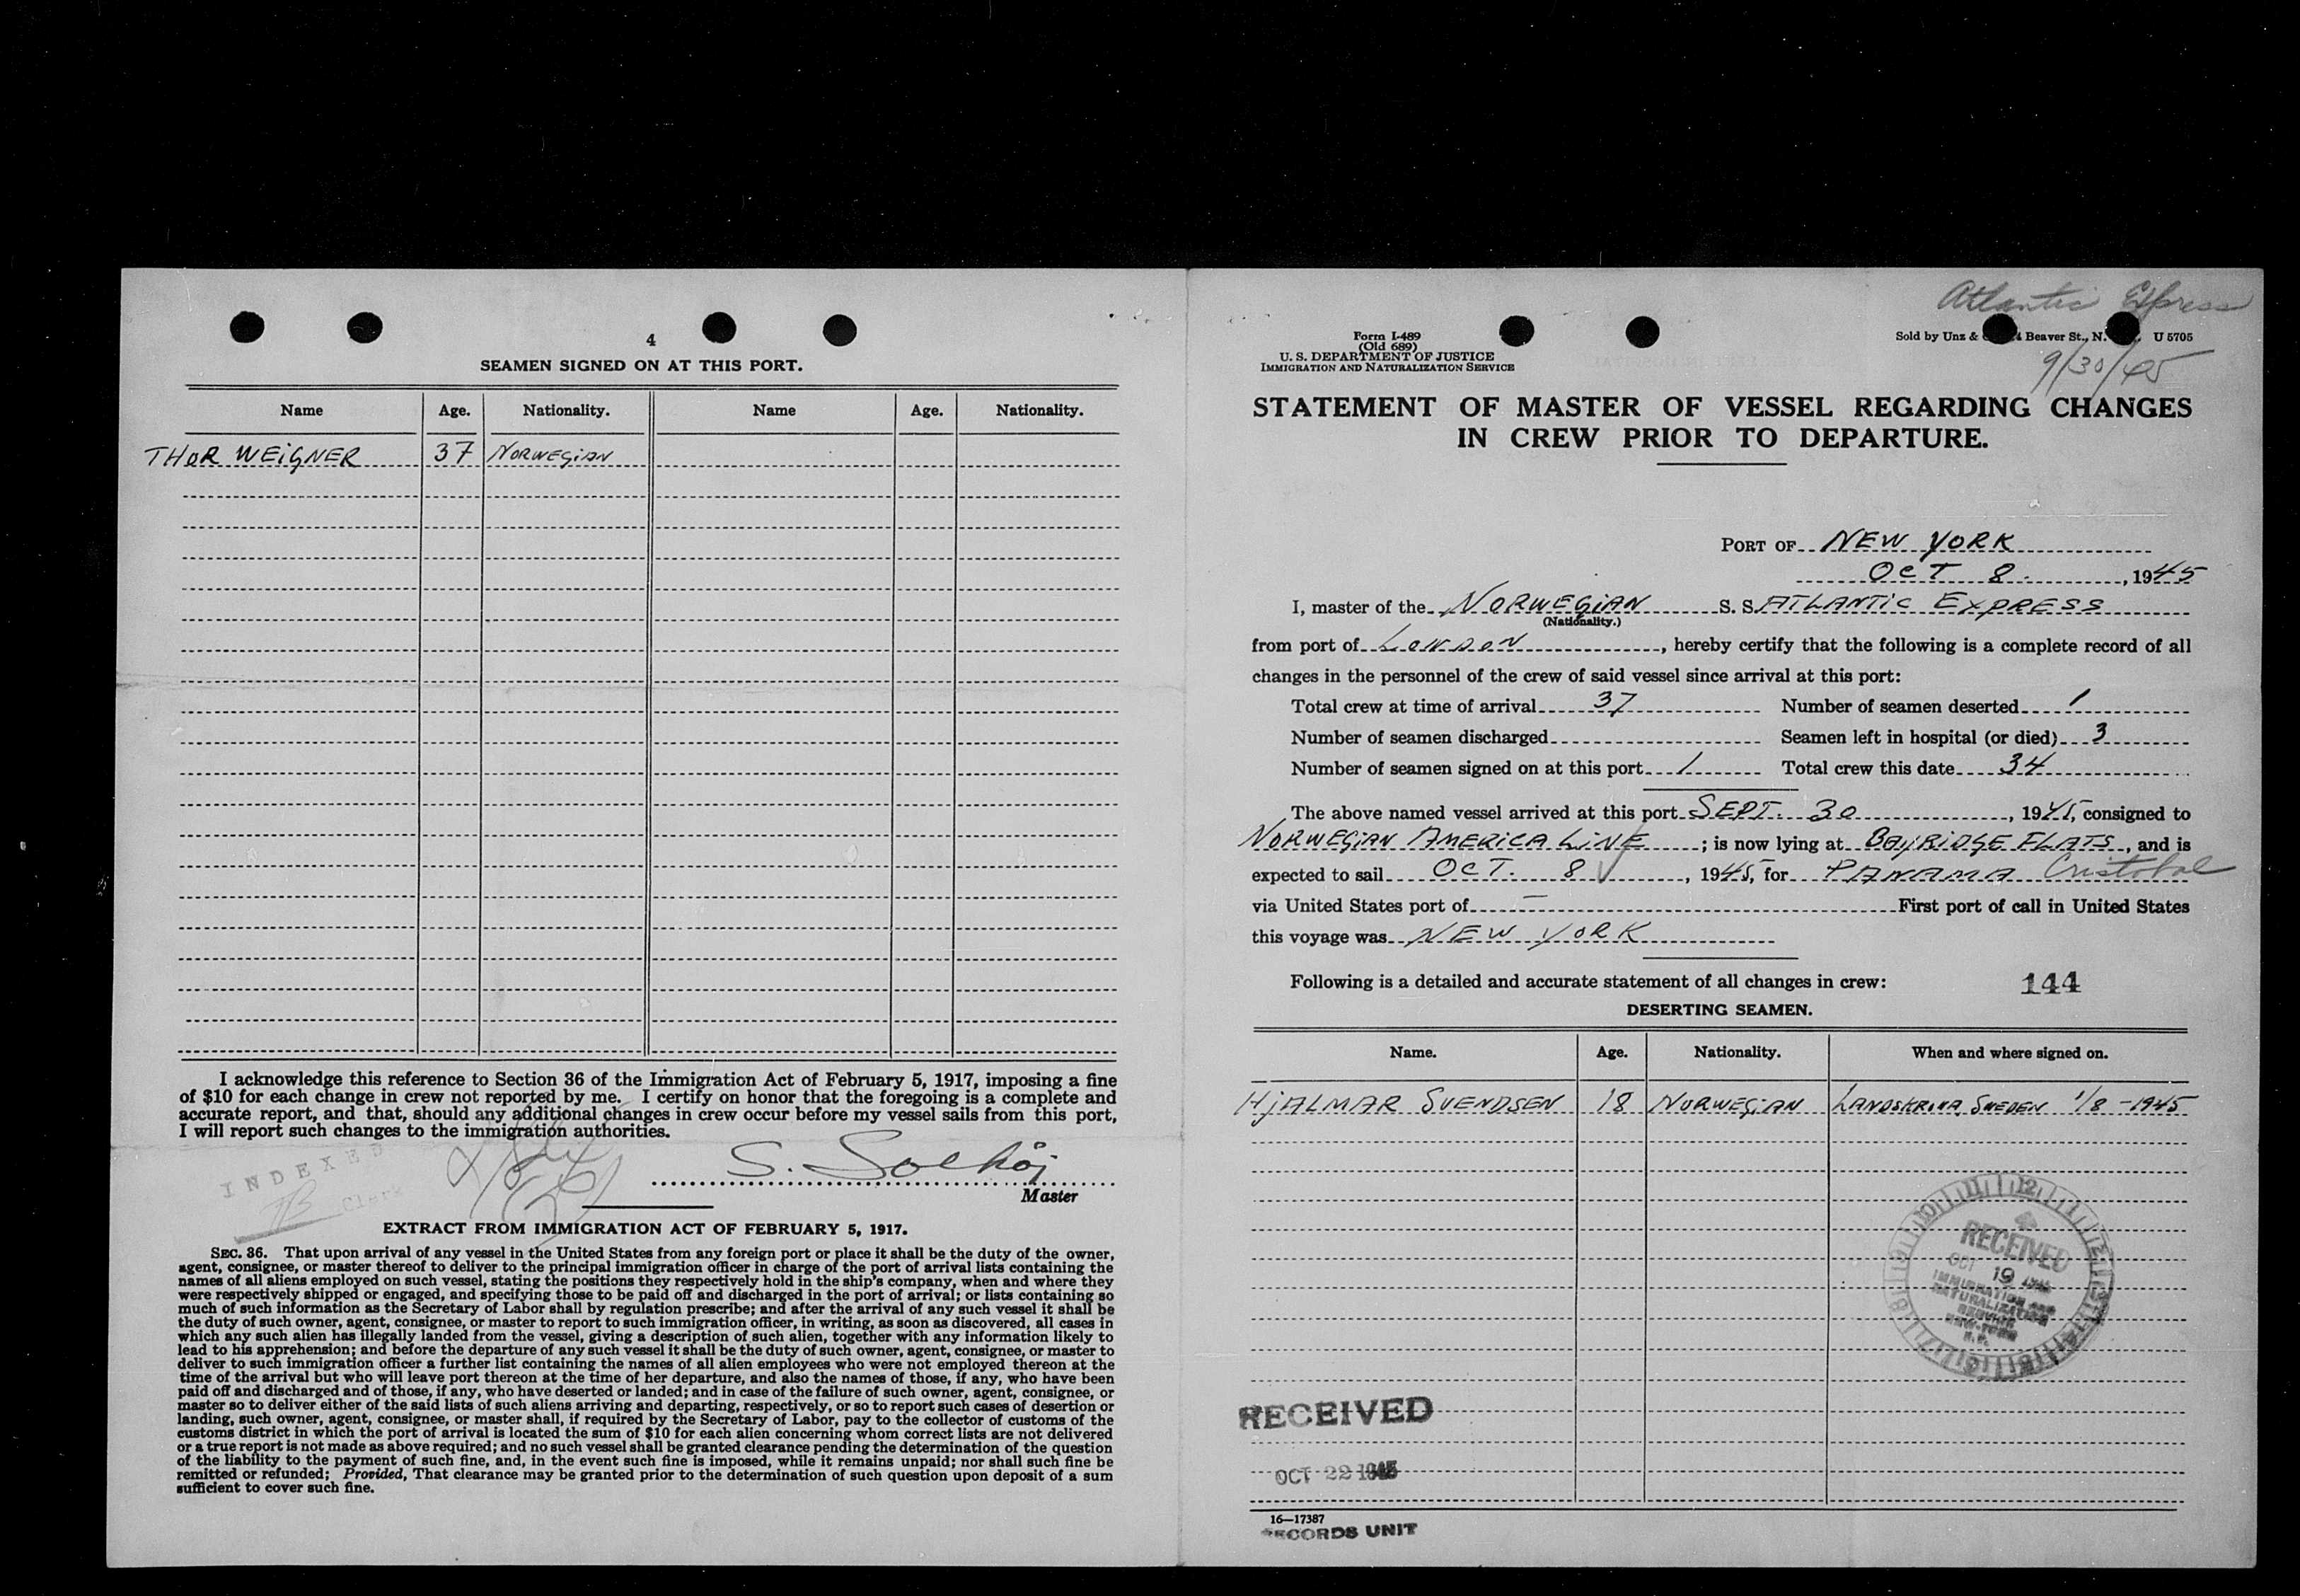 4
SEAMEN SIGNED ON AT THIS PORT.
Name Age. Nationality. Name Age. Nationality.
THOR WEIGNER 37 NORWEGIAN
I acknowledge this reference to Section 36 of the Immigration Act of February 5, 1917, imposing a fine
of $10 for each change in crew not reported by me. I certify on honor that the foregoing is a complete and
accurate report, and that, should any additional changes in crew occur before my vessel sails from this port,
I will report such changes to the immigration authorities.
INDEXED
Clerk
S. Solhöj
Master
EXTRACT FROM IMMIGRATION ACT OF FEBRUARY 5, 1917.
SEC. 36. That upon arrival of any vessel in the United States from any foreign port or place it shall be the duty of the owner,
agent, consignee, or master thereof to deliver to the principal immigration officer in charge of the port of arrival lists containing the
names of all aliens employed on such vessel, stating the positions they respectively hold in the ship's company, when and where they
were respectively shipped or engaged, and specifying those to be paid off and discharged in the port of arrival; or lists containing so
much of such information as the Secretary of Labor shall by regulation prescribe; and after the arrival of any such vessel it shall be
the duty of such owner, agent, consignee, or master to report to such immigration officer, in writing, as soon as discovered, all cases in
which any such alien has illegally landed from the vessel, giving a description of such alien, together with any information likely to
lead to his apprehension; and before the departure of any such vessel it shall be the duty of such owner, agent, consignee, or master to
deliver to such immigration officer a further list containing the names of all alien employees who were not employed thereon at the
time of the arrival but who will leave port thereon at the time of her departure, and also the names of those, if any, who have been
paid off and discharged and of those, if any, who have deserted or landed; and in case of the failure of such owner, agent, consignee, or
master so to deliver either of the said lists of such aliens arriving and departing, respectively, or so to report such cases of desertion or
landing, such owner, agent, consignee, or master shall, if required by the Secretary of Labor, pay to the collector of customs of the
customs district in which the port of arrival is located the sum of $10 for each alien concerning whom correct lists are not delivered
or a true report is not made as above required; and no such vessel shall be granted clearance pending the determination of the question
of the liability to the payment of such fine, and, in the event such fine is imposed, while it remains unpaid; nor shall such fine be
remitted or refunded; Provided, That clearance may be granted prior to the determination of such question upon deposit of a sum
sufficient to cover such fine.
Atlantic Express
Form I-489
(Old 689)
U. S. DEPARTMENT OF JUSTICE
IMMIGRATION AND NATURALIZATION SERVICE
Sold by Unz & Beaver St., N. U 5705
9/30/45
STATEMENT OF MASTER OF VESSEL REGARDING CHANGES
IN CREW PRIOR TO DEPARTURE.
PORT OF NEW YORK
OCT 8. , 1945
I, master of the NORWEGIAN S. S. ATLANTIC EXPRESS
(Nationality.)
from port of LONDON, hereby certify that the following is a complete record of all
changes in the personnel of the crew of said vessel since arrival at this port:
Total crew at time of arrival 37 Number of seamen deserted 1
Number of seamen discharged Seamen left in hospital (or died) 3
Number of seamen signed on at this port 1 Total crew this date 34
The above named vessel arrived at this port SEPT. 30, 1945, consigned to
NORWEGIAN AMERICA LINE; is now lying at BAYRIDGE FLATS, and is
expected to sail OCT. 8, 1945, for PANAMA Cristobal
via United States port of — First port of call in United States
this voyage was NEW YORK
Following is a detailed and accurate statement of all changes in crew: 144
DESERTING SEAMEN.
Name. Age. Nationality. When and where signed on.
HJALMAR SVENDSEN 18 NORWEGIAN LANDSKRONA SWEDEN 1/8-1945
11 12 1
RECEIVED
OCT 19
IMMIGRATION AND
NATURALIZATION
SERVICE
NEW-YORK
N.Y.
RECEIVED
OCT 22 1945
16—17387
RECORDS UNIT